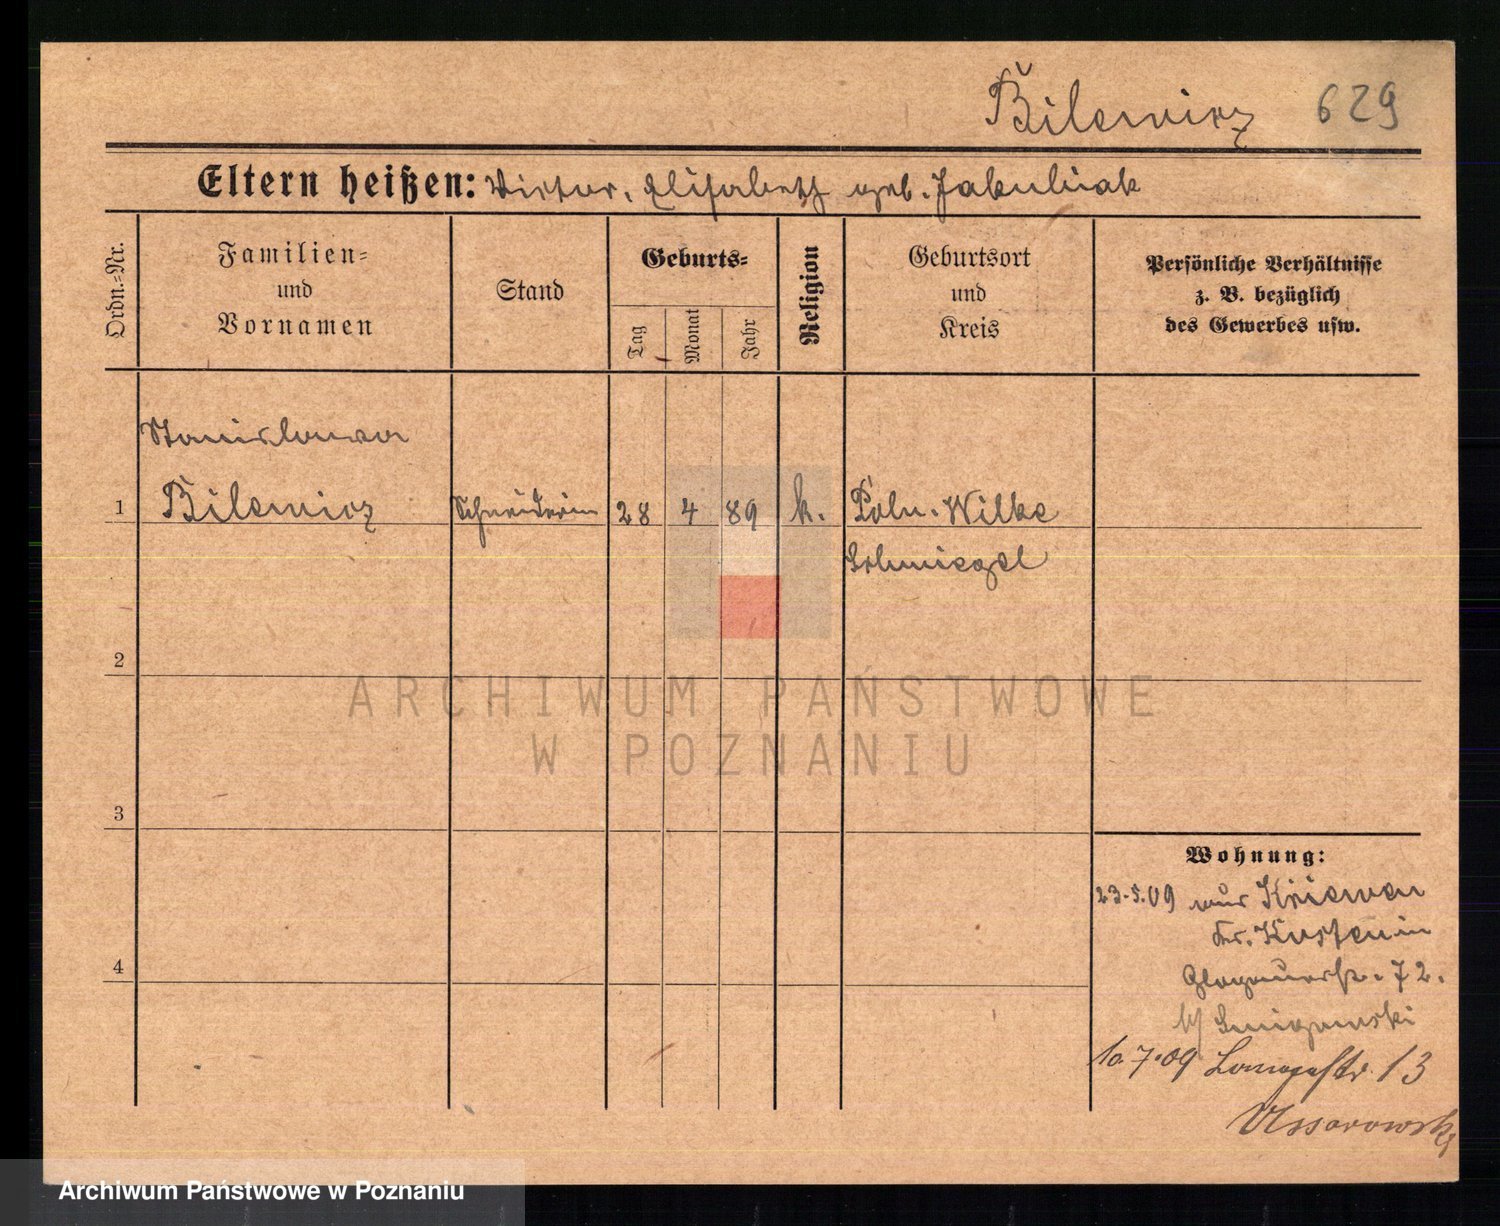 Bilewicz 629
Eltern heißen: Victor, Elisabeth geb. Jakubiak
Ordn.-Nr.
Familien-
und
Vornamen
Stand
Geburts-
Tag
Monat
Jahr
Religion
Geburtsort
und
Kreis
Persönliche Verhältnisse
z. B. bezüglich
des Gewerbes usw.
Stanislawa
1 Bilewicz Schneiderin 28 4 89 k. Poln. Wilke
Schmiegel
2
ARCHIWUM PAŃSTWOWE
W POZNANIU
3
Wohnung:
23.5.09 aus Kriewen
Kr. Kosten in
4
Glogauerstr. 72.
b/
10.7.09 Langestr. 13
Archiwum Państwowe w Poznaniu